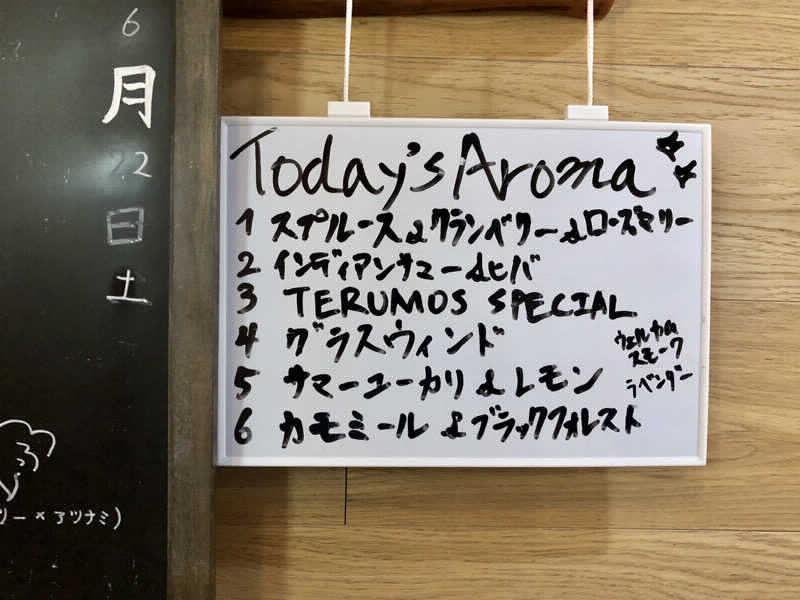 6
月
22
日
土
Today's Aroma
1 スプルース&クランベリー&ローズマリー
2 インディアンサマー&ヒバ
3 TERUMOS SPECIAL
4 グラスウィンド
5 サマーユーカリ&レモン
6 カモミール&ブラックフォレスト
ウェルカム
スモーク
ラベンダー
リー×アツナミ)